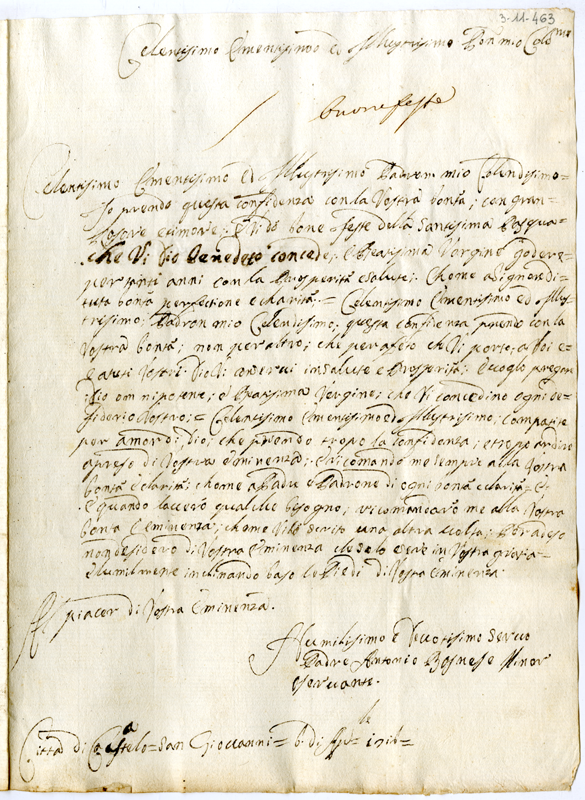 3-11-463
Celentisimo Eminentisimo ed Illustrisimo Padron mio Colen:mo
buone feste
Celentisimo Eminentisimo Ed Illustrisimo Padron mio Colendisimo=
Io prendo questa confidenza con la Vostra bontà; con gran=
timore; E Vi do bone feste della Santisima Pasqua=
che Vi Dio Benedeto concede; E Beatisima Vergine godere=
per tanti anni con la Prosperità e Salute; Chome a Signor di=
tuta bontà perfectione e charità:= Celentisimo Eminentisimo ed Illus=
trisimo; Padron mio Colendisimo; questa confidenza prendo con la
Vostra bontà; non per altro; che per afecto che Vi porto; a Voi e=
Vostri in Salute e Prosperità; E voglio pregare
Dio omnipotente; e Beatisima Vergine; che Vi concedino ogni de=
siderio Vostro;= Celentisimo Eminentisimo ed Illustrisimo; Compatite
per amor di Dio; che prendo tropo la confidenza; e tropo ardire
apreso di Vostra Eminenza; E ricomando me sempre alla Vostra
bontà e charità; chome a Padre e Padrone di ogni bontà e charità=
E quando qualche bisogno; ricomandarò me alla Vostra
bontà Eminenza; chome Vi ho scrito una altra volta; Per adeso
non desidero di Vostra Eminenza che solo esere in Vostra gratia=
E humilmente inchinando baso li Piedi di Vostra Eminenza
piacer di Vostra Eminenza.
Humilisimo e Devotisimo Servo
Padre Antonio Bosnese Minor
Oservante.
Città di Castelo= San Giovanni=